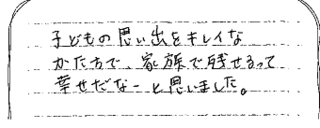 子どもの思い出をキレイな
かたちで、家族で残せるって
幸せだなーと思いました。